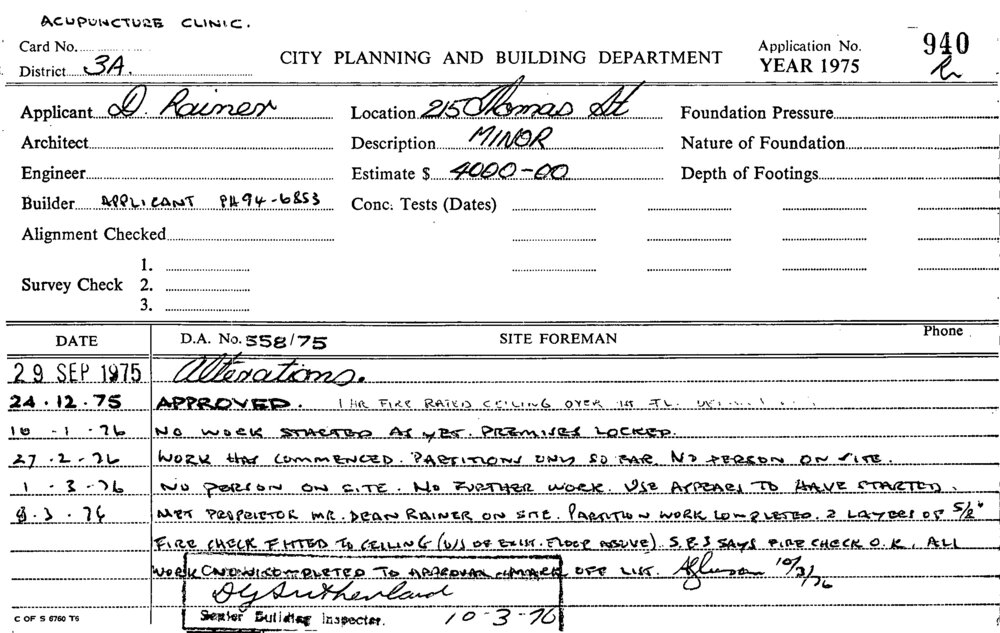 ACUPUNCTURE CLINIC.
Card No.
District 3A.
CITY PLANNING AND BUILDING DEPARTMENT
Application No. 940
YEAR 1975
Applicant D. Rainer
Location 215 Thomas St
Foundation Pressure
Architect
Description MINOR
Nature of Foundation
Engineer
Estimate $ 4000-00
Depth of Footings
Builder APPLICANT PH 94-6853
Conc. Tests (Dates)
Alignment Checked
Survey Check
1.
2.
3.
DATE
D.A. No. 558/75
SITE FOREMAN
Phone
29 SEP 1975 Alterations.
24.12.75 APPROVED. 1 HR FIRE RATED CEILING OVER
10-1-76 NO WORK STARTED AS YET. PREMISES LOCKED.
27.2-76 WORK HAS COMMENCED. PARTITIONS ONLY SO FAR. NO PERSON ON SITE.
1-3-76 NO PERSON ON SITE. NO FURTHER WORK. USE APPEARS TO HAVE STARTED.
9.3.76 MET PROPRIETOR MR. DEAN RAINER ON SITE. PARTITION WORK COMPLETED. 2 LAYERS OF 5/8"
FIRE CHECK FITTED TO CEILING (U/S OF EXIST. FLOOR ABOVE). S.B.S SAYS FIRE CHECK O.K. ALL
WORK NOW COMPLETED TO APPROVAL. MARK OFF LIST. 10/3/76
D G Sutherland
Senior Building Inspector. 10-3-76
C OF S 6760 T6